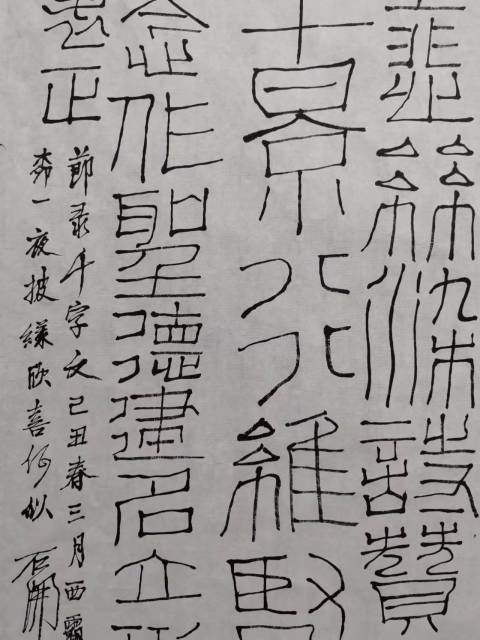 悲絲染詩讚
羊景行維賢
念作聖德建名立形
表正
節录千字文己丑春三月西
一夜披欣喜何似 石開